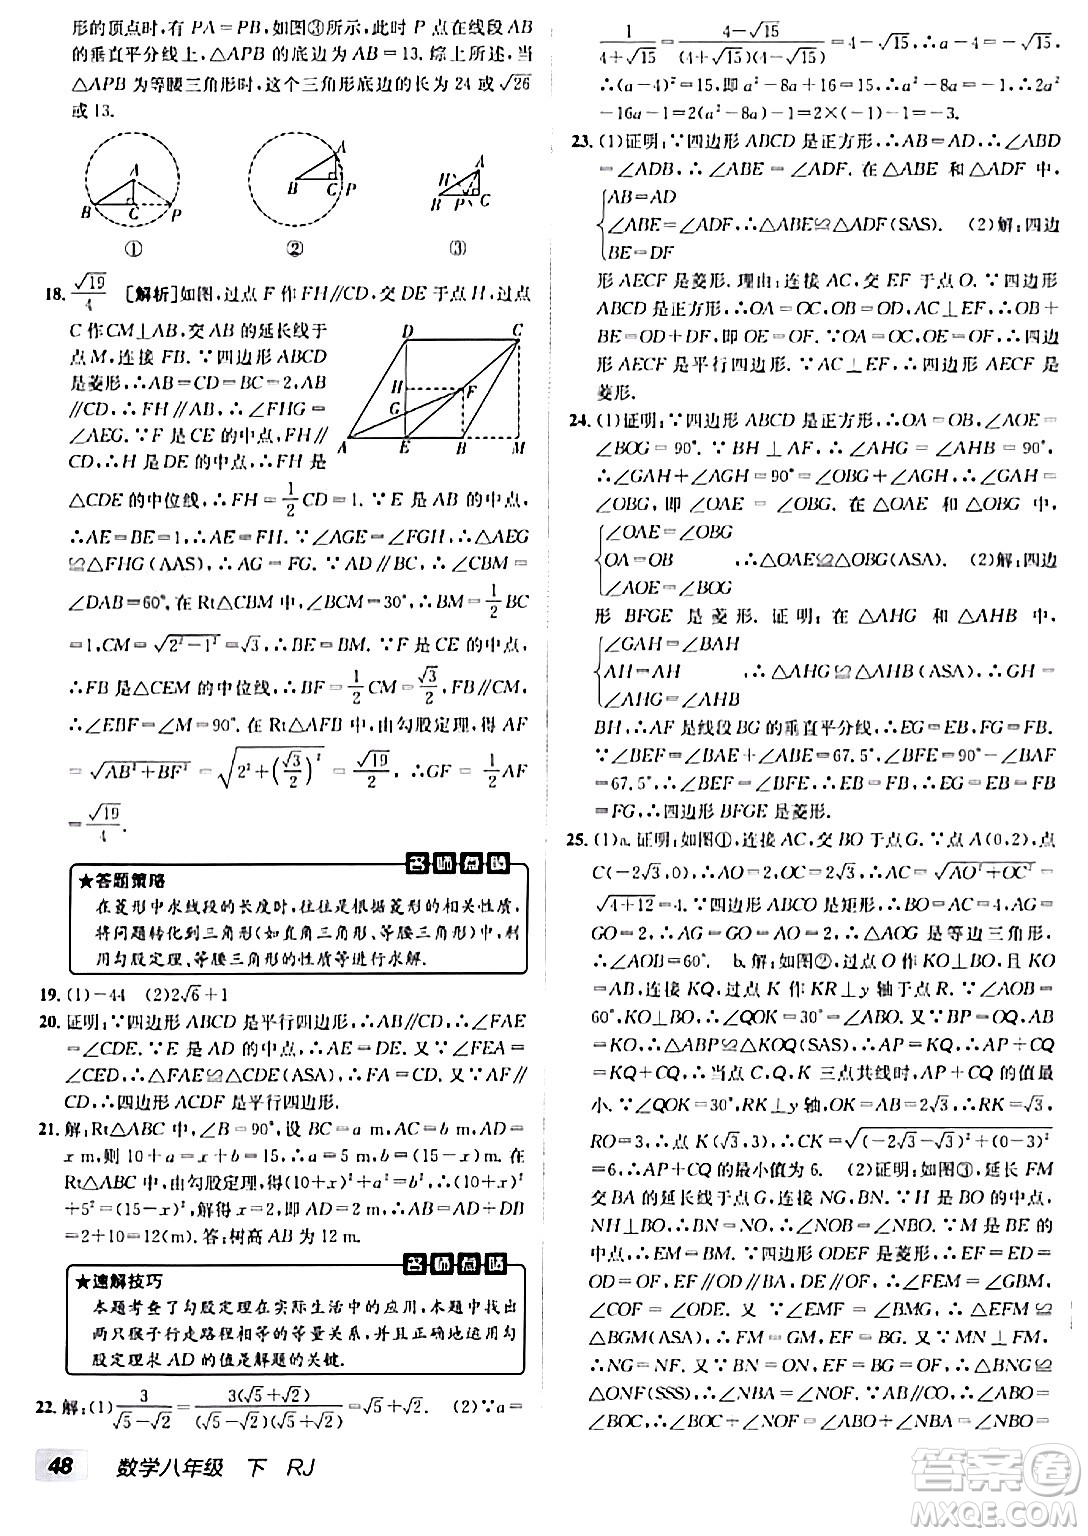 形的顶点时,有 PA=PB,如图③所示,此时 P 点在线段 AB
的垂直平分线上,△APB 的底边为 AB=13. 综上所述,当
△APB 为等腰三角形时,这个三角形底边的长为 24 或 √26
或 13.
A B C P
①
A B C P
②
A H B P C
③
18. √19/4 [解析]如图,过点 F 作 FH∥CD,交 DE 于点 H,过点
C 作 CM⊥AB,交 AB 的延长线于
点 M,连接 FB.∵四边形 ABCD
是菱形,∴AB=CD=BC=2,AB
∥CD,∴FH∥AB,∴∠FHG=
∠AEG.∵F 是 CE 的中点,FH∥
CD,∴H 是 DE 的中点,∴FH 是
D C H F G A E B M
△CDE 的中位线,∴FH=1/2CD=1.∵E 是 AB 的中点,
∴AE=BE=1,∴AE=FH.∵∠AGE=∠FGH,∴△AEG
≌△FHG(AAS),∴AG=FG.∵AD∥BC,∴∠CBM=
∠DAB=60°. 在 Rt△CBM 中,∠BCM=30°,∴BM=1/2BC
=1,CM=√(2²-1²)=√3,∴BE=BM.∵F 是 CE 的中点,
∴FB 是△CEM 的中位线,∴BF=1/2CM=√3/2,FB∥CM,
∴∠EBF=∠M=90°. 在 Rt△AFB 中,由勾股定理,得 AF
=√(AB²+BF²)=√(2²+(√3/2)²)=√19/2,∴GF=1/2AF
=√19/4.
名师点睛
★答题策略
在菱形中求线段的长度时,往往是根据菱形的相关性质,
将问题转化到三角形(如直角三角形、等腰三角形)中,利
用勾股定理、等腰三角形的性质等进行求解.
19. (1)-44 (2)2√6+1
20. 证明:∵四边形 ABCD 是平行四边形,∴AB∥CD,∴∠FAE
=∠CDE.∵E 是 AD 的中点,∴AE=DE. 又∵∠FEA=
∠CED,∴△FAE≌△CDE(ASA),∴FA=CD. 又∵CD∥
AF,∴四边形 ACDF 是平行四边形.
21. 解:Rt△ABC 中,∠B=90°,设 BC=a m,AC=b m,AD=
x m,则 10+a=x+b=15,∴a=5,b=15-x. 又∵在
Rt△ABC 中,由勾股定理,得(10+x)²+a²=b²,∴(10+x)²
+5²=(15-x)²,解得 x=2,即 AD=2 m,∴AB=AD+DB
=2+10=12(m). 答:树高 AB 为 12 m.
名师点睛
★速解技巧
本题考查了勾股定理在实际生活中的应用,本题中找出
两只猴子行走路程相等的等量关系,并且正确地运用勾
股定理求 AD 的值是解题的关键.
22. 解:(1)3/(√5-√2)=3(√5+√2)/((√5-√2)(√5+√2))=√5+√2. (2)∵a=
48 数学八年级 下 RJ
1/(4+√15)=(4-√15)/((4+√15)(4-√15))=4-√15,∴a-4=-√15,
∴(a-4)²=15,即 a²-8a+16=15,∴a²-8a=-1,∴2a²
-16a-1=2(a²-8a)-1=2×(-1)-1=-3.
23. (1)证明:∵四边形 ABCD 是正方形,∴AB=AD,∴∠ABD
=∠ADB,∴∠ABE=∠ADF. 在△ABE 和△ADF 中,
AB=AD
∠ABE=∠ADF,∴△ABE≌△ADF(SAS). (2)解:四边
BE=DF
形 AECF 是菱形. 理由:连接 AC,交 EF 于点 O.∵四边形
ABCD 是正方形,∴OA=OC,OB=OD,AC⊥EF,∴OB+
BE=OD+DF,即 OE=OF.∵OA=OC,OE=OF,∴四边
形 AECF 是平行四边形. 又∵AC⊥EF,∴四边形 AECF 是
菱形.
24. (1)证明:∵四边形 ABCD 是正方形,∴OA=OB,∠AOE=
∠BOG=90°.∵BH⊥AF,∴∠AHG=∠AHB=90°,
∴∠GAH+∠AGH=90°=∠OBG+∠AGH,∴∠GAH=
∠OBG,即∠OAE=∠OBG. 在△OAE 和△OBG 中,
∠OAE=∠OBG
OA=OB ,∴△OAE≌△OBG(ASA). (2)解:四边
∠AOE=∠BOG
形 BFGE 是菱形. 证明:在△AHG 和△AHB 中,
∠GAH=∠BAH
AH=AH ,∴△AHG≌△AHB(ASA),∴GH=
∠AHG=∠AHB
BH,∴AF 是线段 BG 的垂直平分线,∴EG=EB,FG=FB.
∵∠BEF=∠BAE+∠ABE=67.5°,∠BFE=90°-∠BAF
=67.5°,∴∠BEF=∠BFE,∴EB=FB,∴EG=EB=FB
=FG,∴四边形 BFGE 是菱形.
25. (1)a. 证明:如图①,连接 AC,交 BO 于点 G.∵点 A(0,2),点
C(-2√3,0),∴AO=2,CO=2√3,∴AC=√(AO²+CO²)=
√(4+12)=4.∵四边形 ABCO 是矩形,∴BO=AC=4,AG=
GO=2,∴AG=GO=AO=2,∴△AGO 是等边三角形,
∴∠AOB=60°. b. 解:如图②,过点 O 作 OK⊥BO,OK=
BO,连接 KQ,过点 K 作 KR⊥y 轴于点 R.∵∠AOB=
60°,OK⊥BO,∴∠QOK=30°=∠ABO.又∵BP=OQ,AB
=KO,∴△ABP≌△KOQ(SAS),∴AP=KQ,∴AP+CQ
=KQ+CQ,∴当点 C,Q,K 三点共线时,AP+CQ 的值最
小.∵∠QOK=30°,KR⊥y 轴,AB=OK=2√3,∴RK=√3,
RO=3,∴点 K(√3,3),∴CK=√((-2√3-√3)²+(0-3)²)
=6,∴AP+CQ 的最小值为 6. (2)证明:如图③,延长 FM
交 BA 的延长线于点 G,连接 NG,BN.∵H 是 BO 的中点,
NH⊥BO,∴BN=NO,∴∠NBO=∠NOB.∵M 是 BE 的
中点,∴EM=BM.∵四边形 ODEF 是菱形,∴EF=DO=
OD=OF,EF∥OD∥BA,∴∠FEM=∠GBM,
∠COF=∠ODE. 又∵∠EMF=∠BMG,∴△EFM≌
△BGM(ASA),∴EF=BG,FM=GM. 又∵MN⊥FM,
∴NF=NG. 又∵BN=NO,BG=EF=OF,∴△BNG≌
△ONF(SSS),∴∠NBA=∠NOF. 又∵∠NBO=
∠BOC,∴∠BOC+∠BOF=∠ABO+∠NBA=∠BOC+
答案圈
MXQE.COM